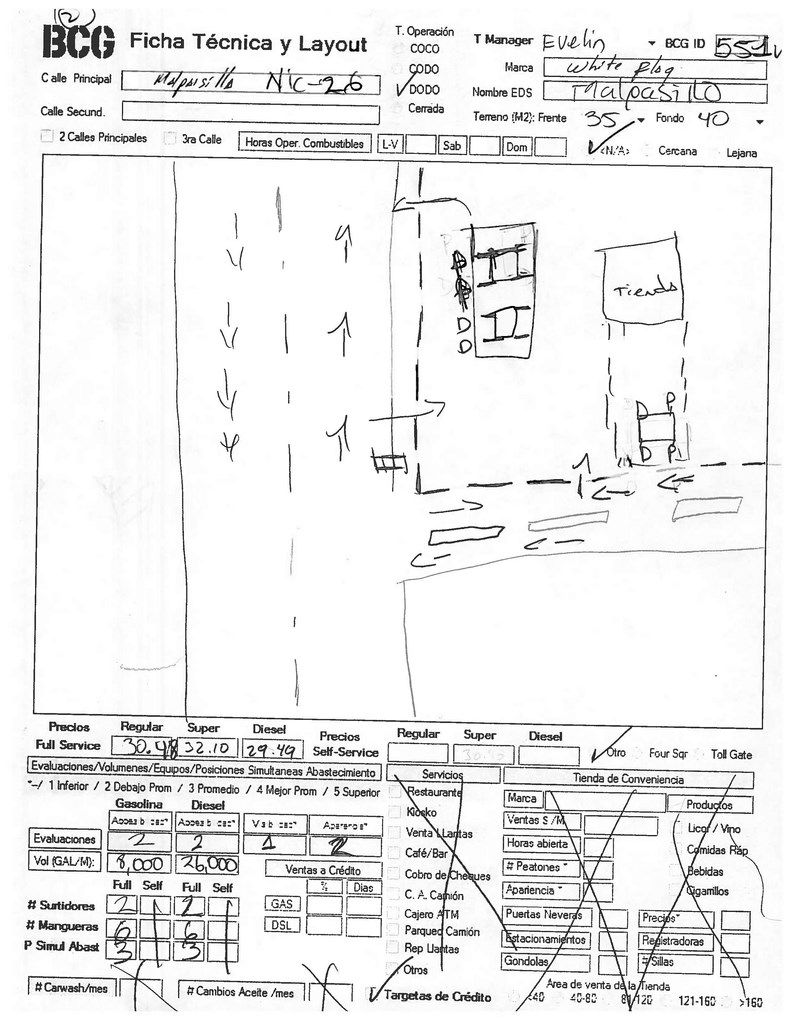 (2)
BCG Ficha Técnica y Layout
T. Operación
COCO
CODO
DODO
Cerrada
T Manager Evelin BCG ID 551
Marca White Flag
Nombre EDS Malpasillo
Terreno (M2): Frente 35 Fondo 40
Calle Principal Malpasillo NIC-26
Calle Secund.
2 Calles Principales 3ra Calle Horas Oper. Combustibles L-V Sab Dom
<N/A> Cercana Lejana
D
D
Tienda
D P
D P
Precios Regular Super Diesel Precios Regular Super Diesel
Full Service 30.48 32.10 29.49 Self-Service Otro Four Sqr Toll Gate
Evaluaciones/Volumenes/Equipos/Posiciones Simultaneas Abastecimiento
*--/ 1 Inferior / 2 Debajo Prom / 3 Promedio / 4 Mejor Prom / 5 Superior
Gasolina Diesel
Evaluaciones 2 2 1 2
Vol (GAL/M): 8,000 26,000
Ventas a Crédito
% Dias
GAS
DSL
Full Self Full Self
# Surtidores 2 2
# Mangueras 6 6
P Simul Abast 3 3
# Carwash/mes # Cambios Aceite /mes
Servicios
Restaurante
Kiosko
Venta Llantas
Café/Bar
Cobro de Cheques
C. A. Camión
Cajero ATM
Parqueo Camión
Rep Llantas
Otros
Targetas de Crédito
Tienda de Conveniencia
Marca
Ventas $ /M
Horas abierta
# Peatones *
Apariencia *
Puertas Neveras
Estacionamientos
Gondolas
Productos
Licor / Vino
Comidas Ráp
Bebidas
Cigarrillos
Precios*
Registradoras
# Sillas
Area de venta de la Tienda
<40 40-80 81-120 121-160 >160